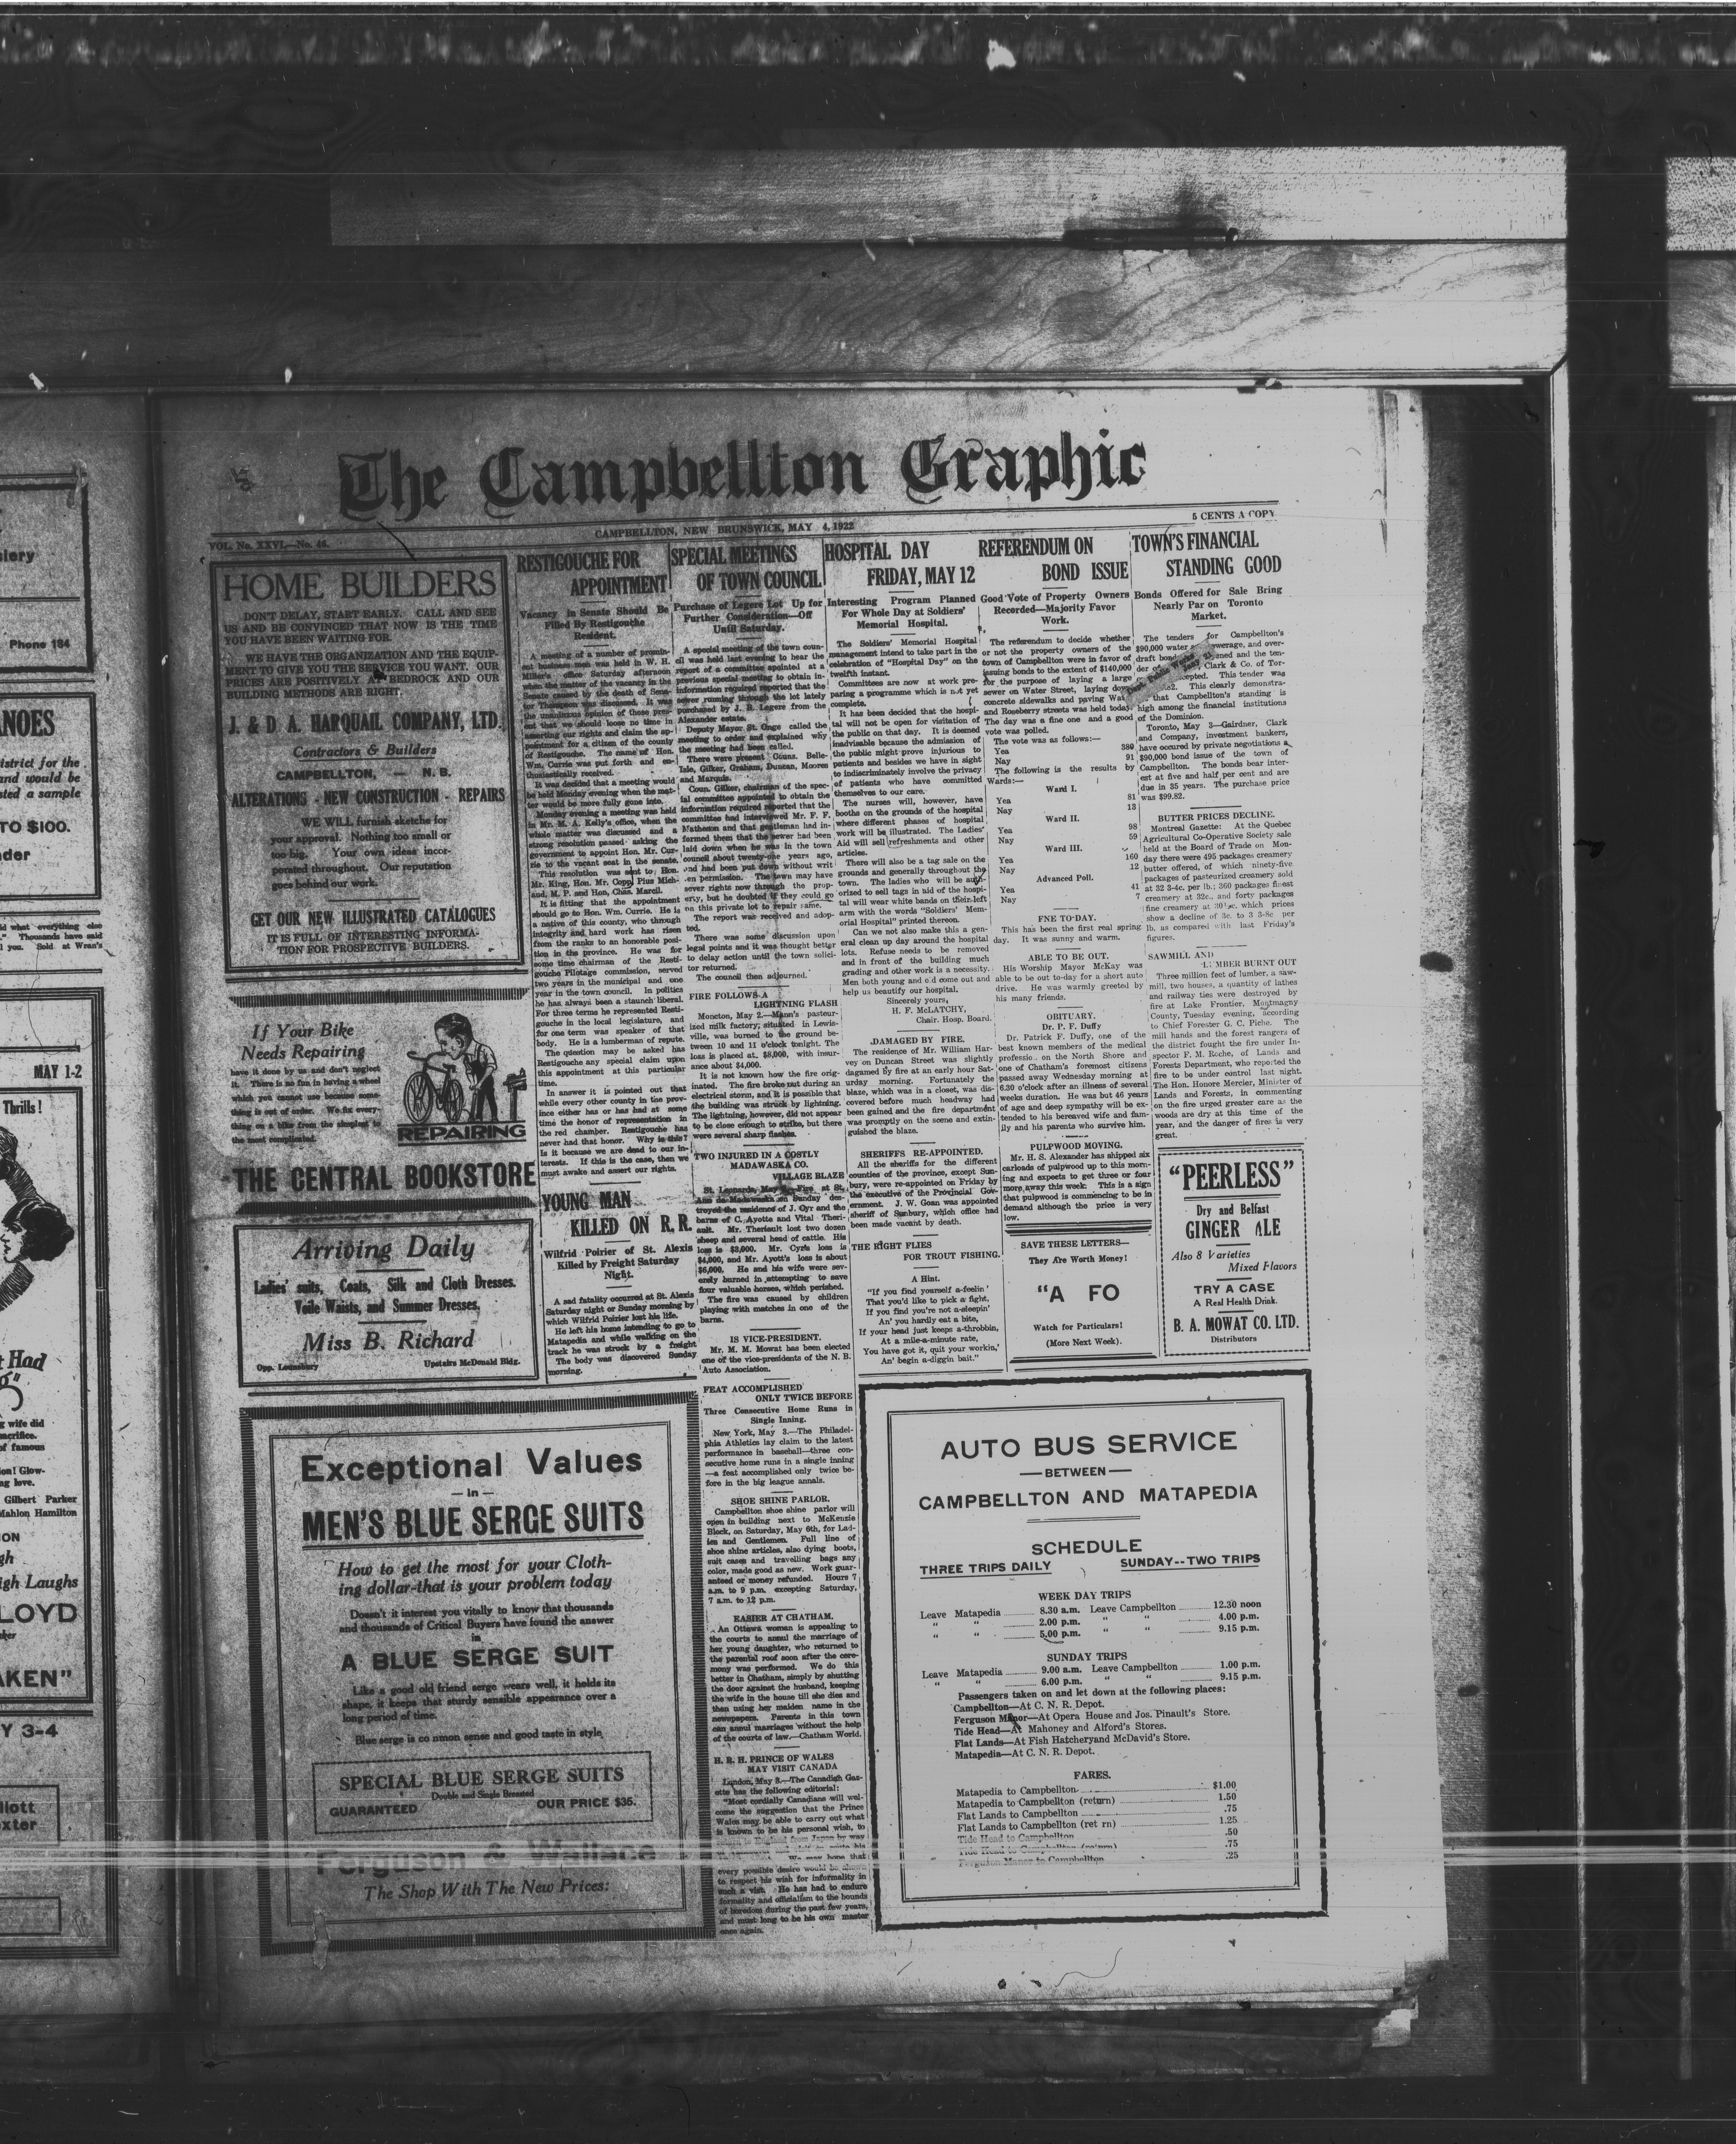 The Campbellton Graphic
VOL. No. XXVI.—No. 46.
CAMPBELLTON, NEW BRUNSWICK, MAY 4, 1922
5 CENTS A COPY
HOME BUILDERS
DON'T DELAY, START EARLY. CALL AND SEE
US AND BE CONVINCED THAT NOW IS THE TIME
YOU HAVE BEEN WAITING FOR.
WE HAVE THE ORGANIZATION AND THE EQUIP-
MENT TO GIVE YOU THE SERVICE YOU WANT. OUR
PRICES ARE POSITIVELY AT BEDROCK AND OUR
BUILDING METHODS ARE RIGHT.
J. & D. A. HARQUAIL COMPANY, LTD.
Contractors & Builders
CAMPBELLTON, — N. B.
ALTERATIONS - NEW CONSTRUCTION - REPAIRS
WE WILL furnish sketche for
your approval. Nothing too small or
too big. Your own ideas incor-
porated throughout. Our reputation
goes behind our work.
GET OUR NEW ILLUSTRATED CATALOGUES
IT IS FULL OF INTERESTING INFORMA-
TION FOR PROSPECTIVE BUILDERS.
If Your Bike
Needs Repairing
have it done by us and don't neglect
it. There is no fun in having a wheel
which you cannot use because some-
thing is out of order. We fix every-
thing on a bike from the simplest to
the most complicated.
REPAIRING
THE CENTRAL BOOKSTORE
Arriving Daily
Ladies' suits, Coats, Silk and Cloth Dresses.
Voile Waists, and Summer Dresses,
Miss B. Richard
Opp. Lounsbury
Upstairs McDonald Bldg.
RESTIGOUCHE FOR
APPOINTMENT
Vacancy in Senate Should Be
Filled By Restigouche
Resident.
A meeting of a number of promin-
ent business men was held in W. H.
Miller's office Saturday afternoon
when the matter of the vacancy in the
Senate caused by the death of Sena-
tor Thompson was discussed. It was
the unanimous opinion of those pres-
ent that we should loose no time in
asserting our rights and claim the ap-
pointment for a citizen of the county
of Restigouche. The name of Hon.
Wm. Currie was put forth and en-
thusiastically received.
It was decided that a meeting would
be held Monday evening when the mat-
ter would be more fully gone into.
Monday evening a meeting was held
in Mr. M. A. Kelly's office, when the
whole matter was discussed and a
strong resolution passed asking the
government to appoint Hon. Mr. Cur-
rie to the vacant seat in the senate.
This resolution was sent to Hon.
Mr. King, Hon. Mr. Copp, Pius Mich-
aud, M. P. and Hon. Chas. Marcil.
It is fitting that the appointment
should go to Hon. Wm. Currie. He is
a native of this county, who through
integrity and hard work has risen
from the ranks to an honorable posi-
tion in the province. He was for
some time chairman of the Resti-
gouche Pilotage commission, served
two years in the municipal and one
year in the town council. In politics
he has always been a staunch liberal.
For three terms he represented Resti-
gouche in the local legislature, and
for one term was speaker of that
body. He is a lumberman of repute.
The question may be asked has
Restigouche any special claim upon
this appointment at this particular
time.
In answer it is pointed out that
while every other county in the prov-
ince either has or has had at some
time the honor of representation in
the red chamber. Restigouche has
never had that honor. Why is this?
Is it because we are dead to our in-
terests. If this is the case, then we
must awake and assert our rights.
YOUNG MAN
KILLED ON R. R.
Wilfrid Poirier of St. Alexis
Killed by Freight Saturday
Night.
A sad fatality occurred at St. Alexis
Saturday night or Sunday morning by
which Wilfrid Poirier lost his life.
He left his home intending to go to
Matapedia and while walking on the
track he was struck by a freight
The body was discovered Sunday
morning.
SPECIAL MEETINGS
OF TOWN COUNCIL
Purchase of Legere Lot Up for
Further Consideration—Off
Until Saturday.
A special meeting of the town coun-
cil was held last evening to hear the
report of a committee appointed at a
previous special meeting to obtain in-
formation required reported that the
sewer running through the lot lately
purchased by J. R. Legere from the
Alexander estate.
Deputy Mayor St. Onge called the
meeting to order and explained why
the meeting had been called.
There were present Couns. Belle-
Isle, Gilker, Graham, Duncan, Moores
and Marquis.
Coun. Gilker, chairman of the spec-
ial committee appointed to obtain the
information required reported that the
committee had interviewed Mr. F. F.
Matheson and that gentleman had in-
formed them that the sewer had been
laid down when he was in the town
council about twenty-one years ago,
and had been put down without writ
en permission. The town may have
sover rights now through the prop-
erty, but he doubted if they could go
on this private lot to repair same.
The report was received and adop-
ted.
There was some discussion upon
legal points and it was thought better
to delay action until the town solici-
tor returned.
The council then adjourned.
FIRE FOLLOWS A
LIGHTNING FLASH
Moncton, May 2.—Mann's pasteur-
ized milk factory; situated in Lewis-
ville, was burned to the ground be-
tween 10 and 11 o'clock tonight. The
loss is placed at $8,000, with insur-
ance about $4,000.
It is not known how the fire orig-
inated. The fire broke out during an
electrical storm, and it is possible that
the building was struck by lightning.
The lightning, however, did not appear
to be close enough to strike, but there
were several sharp flashes.
TWO INJURED IN A COSTLY
MADAWASKA CO.
VILLAGE BLAZE
St. Leonards, May 2.—Fire at St.
Ann de Madawaska on Sunday des-
troyed the residence of J. Cyr and the
barns of C. Ayotte and Vital Theri-
ault. Mr. Theriault lost two dozen
sheep and several head of cattle. His
loss is $3,000. Mr. Cyr's loss is
$4,000, and Mr. Ayott's loss is about
$6,000. He and his wife were sev-
erely burned in attempting to save
four valuable horses, which perished.
The fire was caused by children
playing with matches in one of the
barns.
IS VICE-PRESIDENT.
Mr. M. M. Mowat has been elected
one of the vice-presidents of the N. B.
Auto Association.
FEAT ACCOMPLISHED
ONLY TWICE BEFORE
Three Consecutive Home Runs in
Single Inning.
New York, May 3.—The Philadel-
phia Athletics lay claim to the latest
performance in baseball—three con-
secutive home runs in a single inning
—a feat accomplished only twice be-
fore in the big league annals.
SHOE SHINE PARLOR.
Campbellton shoe shine parlor will
open in building next to McKenzie
Block, on Saturday, May 6th, for Lad-
ies and Gentlemen. Full line of
shoe shine articles, also dying boots,
suit cases and travelling bags any
color, made good as new. Work guar-
anteed or money refunded. Hours 7
a.m. to 9 p.m. excepting Saturday,
7 a.m. to 12 p.m.
EASIER AT CHATHAM.
An Ottawa woman is appealing to
the courts to annul the marriage of
her young daughter, who returned to
the parental roof soon after the cere-
mony was performed. We do this
better in Chatham, simply by shutting
the door against the husband, keeping
the wife in the house till she dies and
then using her maiden name in the
newspapers. Parents in this town
can annul marriages without the help
of the courts of law.—Chatham World.
H. R. H. PRINCE OF WALES
MAY VISIT CANADA
London, May 3.—The Canadian Gaz-
ette has the following editorial:
"Most cordially Canadians will wel-
come the suggestion that the Prince
Wales may be able to carry out what
is known to be his personal wish, to
England from Japan by way
We may hope that
every possible desire would be shown
to respect his wish for informality in
such a visit. He has had to endure
formality and officialism to the bounds
of boredom during the past few years,
and must long to be his own master
once again.
HOSPITAL DAY
FRIDAY, MAY 12
Interesting Program Planned
For Whole Day at Soldiers'
Memorial Hospital.
The Soldiers' Memorial Hospital
management intend to take part in the
celebration of "Hospital Day" on the
twelfth instant.
Committees are now at work pre-
paring a programme which is not yet
complete.
It has been decided that the hospi-
tal will not be open for visitation of
the public on that day. It is deemed
inadvisable because the admission of
the public might prove injurious to
patients and besides we have in sight
to indiscriminately involve the privacy
of patients who have committed
themselves to our care.
The nurses will, however, have
booths on the grounds of the hospital
where different phases of hospital
work will be illustrated. The Ladies'
Aid will sell refreshments and other
articles.
There will also be a tag sale on the
grounds and generally throughout the
town. The ladies who will be auth-
orized to sell tags in aid of the hospi-
tal will wear white bands on their left
arm with the words "Soldiers' Mem-
orial Hospital" printed thereon.
Can we not also make this a gen-
eral clean up day around the hospital
lots. Refuse needs to be removed
and in front of the building much
grading and other work is a necessity.
Men both young and old come out and
help us beautify our hospital.
Sincerely yours,
H. F. McLATCHY,
Chair. Hosp. Board.
DAMAGED BY FIRE.
The residence of Mr. William Har-
vey on Duncan Street was slightly
dagamed by fire at an early hour Sat-
urday morning. Fortunately the
blaze, which was in a closet, was dis-
covered before much headway had
been gained and the fire department
was promptly on the scene and extin-
guished the blaze.
SHERIFFS RE-APPOINTED.
All the sheriffs for the different
counties of the province, except Sun-
bury, were re-appointed on Friday by
the executive of the Provincial Gov-
ernment. J. W. Goan was appointed
sheriff of Sunbury, which office had
been made vacant by death.
THE RIGHT FLIES
FOR TROUT FISHING.
A Hint.
"If you find yourself a-feelin'
That you'd like to pick a fight,
If you find you're not a-sleepin'
An' you hardly eat a bite,
If your head just keeps a-throbbin,
At a mile-a-minute rate,
You have got it, quit your workin,'
An' begin a-diggin bait."
REFERENDUM ON
BOND ISSUE
Good Vote of Property Owners
Recorded—Majority Favor
Work.
The referendum to decide whether
or not the property owners of the
town of Campbellton were in favor of
issuing bonds to the extent of $140,000
for the purpose of laying a large
sewer on Water Street, laying down
concrete sidewalks and paving Water
and Roseberry streets was held today.
The day was a fine one and a good
vote was polled.
The vote was as follows:—
Yea 380
Nay 91
The following is the results by
Wards:—
Ward I.
Yea 81
Nay 13
Ward II.
Yea 98
Nay 59
Ward III.
Yea 160
Nay 12
Advanced Poll.
Yea 41
Nay 7
FNE TO-DAY.
This has been the first real spring
day. It was sunny and warm.
ABLE TO BE OUT.
His Worship Mayor McKay was
able to be out to-day for a short auto
drive. He was warmly greeted by
his many friends.
OBITUARY.
Dr. P. F. Duffy
Dr. Patrick F. Duffy, one of the
best known members of the medical
professio.. on the North Shore and
one of Chatham's foremost citizens
passed away Wednesday morning at
6.30 o'clock after an illness of several
weeks duration. He was but 46 years
of age and deep sympathy will be ex-
tended to his bereaved wife and fam-
ily and his parents who survive him.
PULPWOOD MOVING.
Mr. H. S. Alexander has shipped six
carloads of pulpwood up to this morn-
ing and expects to get three or four
more away this week. This is a sign
that pulpwood is commencing to be in
demand although the price is very
low.
SAVE THESE LETTERS—
They Are Worth Money!
"A FO
Watch for Particulars!
(More Next Week).
TOWN'S FINANCIAL
STANDING GOOD
Bonds Offered for Sale Bring
Nearly Par on Toronto
Market.
The tenders for Campbellton's
$90,000 water sewerage, and over-
draft bond opened and the ten-
der of Clark & Co. of Tor-
accepted. This tender was
This clearly demonstra-
that Campbellton's standing is
high among the financial institutions
of the Dominion.
Toronto, May 3—Gairdner, Clark
and Company, investment bankers,
have occured by private negotiations a
$90,000 bond issue of the town of
Campbellton. The bonds bear inter-
est at five and half per cent and are
due in 35 years. The purchase price
was $99.82.
Dept. Public Works
BUTTER PRICES DECLINE.
Montreal Gazette: At the Quebec
Agricultural Co-Operative Society sale
held at the Board of Trade on Mon-
day there were 495 packages creamery
butter offered, of which ninety-five
packages of pasteurized creamery sold
at 32 3-4c. per lb.; 360 packages finest
creamery at 32c., and forty packages
fine creamery at 30½c. which prices
show a decline of 3c. to 3 3-8c per
lb. as compared with last Friday's
figures.
SAWMILL AND
LUMBER BURNT OUT
Three million feet of lumber, a saw-
mill, two houses, a quantity of lathes
and railway ties were destroyed by
fire at Lake Frontier, Montmagny
County, Tuesday evening, according
to Chief Forester G. C. Piche. The
mill hands and the forest rangers of
the district fought the fire under In-
spector F. M. Roche, of Lands and
Forests Department, who reported the
fire to be under control last night.
The Hon. Honore Mercier, Minister of
Lands and Forests, in commenting
on the fire urged greater care as the
woods are dry at this time of the
year, and the danger of fires is very
great.
"PEERLESS"
Dry and Belfast
GINGER ALE
Also 8 Varieties
Mixed Flavors
TRY A CASE
A Real Health Drink.
B. A. MOWAT CO. LTD.
Distributors
Exceptional Values
— In —
MEN'S BLUE SERGE SUITS
How to get the most for your Cloth-
ing dollar-that is your problem today
Doesn't it interest you vitally to know that thousands
and thousands of Critical Buyers have found the answer
in
A BLUE SERGE SUIT
Like a good old friend serge wears well, it holds its
shape, it keeps that sturdy sensible appearance over a
long period of time.
Blue serge is co nmon sense and good taste in style
SPECIAL BLUE SERGE SUITS
Double and Single Breasted
GUARANTEED OUR PRICE $35.
Ferguson & Wallace
The Shop With The New Prices:
AUTO BUS SERVICE
— BETWEEN —
CAMPBELLTON AND MATAPEDIA
SCHEDULE
THREE TRIPS DAILY SUNDAY--TWO TRIPS
WEEK DAY TRIPS
Leave Matapedia 8.30 a.m. Leave Campbellton 12.30 noon
" " 2.00 p.m. " " 4.00 p.m.
" " 5.00 p.m. " " 9.15 p.m.
SUNDAY TRIPS
Leave Matapedia 9.00 a.m. Leave Campbellton 1.00 p.m.
" " 6.00 p.m. " " 9.15 p.m.
Passengers taken on and let down at the following places:
Campbellton—At C. N. R. Depot.
Ferguson Manor—At Opera House and Jos. Pinault's Store.
Tide Head—At Mahoney and Alford's Stores.
Flat Lands—At Fish Hatcheryand McDavid's Store.
Matapedia—At C. N. R. Depot.
FARES.
Matapedia to Campbellton $1.00
Matapedia to Campbellton (return) 1.50
Flat Lands to Campbellton .75
Flat Lands to Campbellton (ret rn) 1.25
Tide Head to Campbellton .50
Tide Head to Campbellton (return) .75
Ferguson Manor to Campbellton .25
Phone 184
MAY 1-2
Thrills!
TO $100.
Gilbert Parker
Mahlon Hamilton
igh Laughs
LOYD
AKEN"
Y 3-4